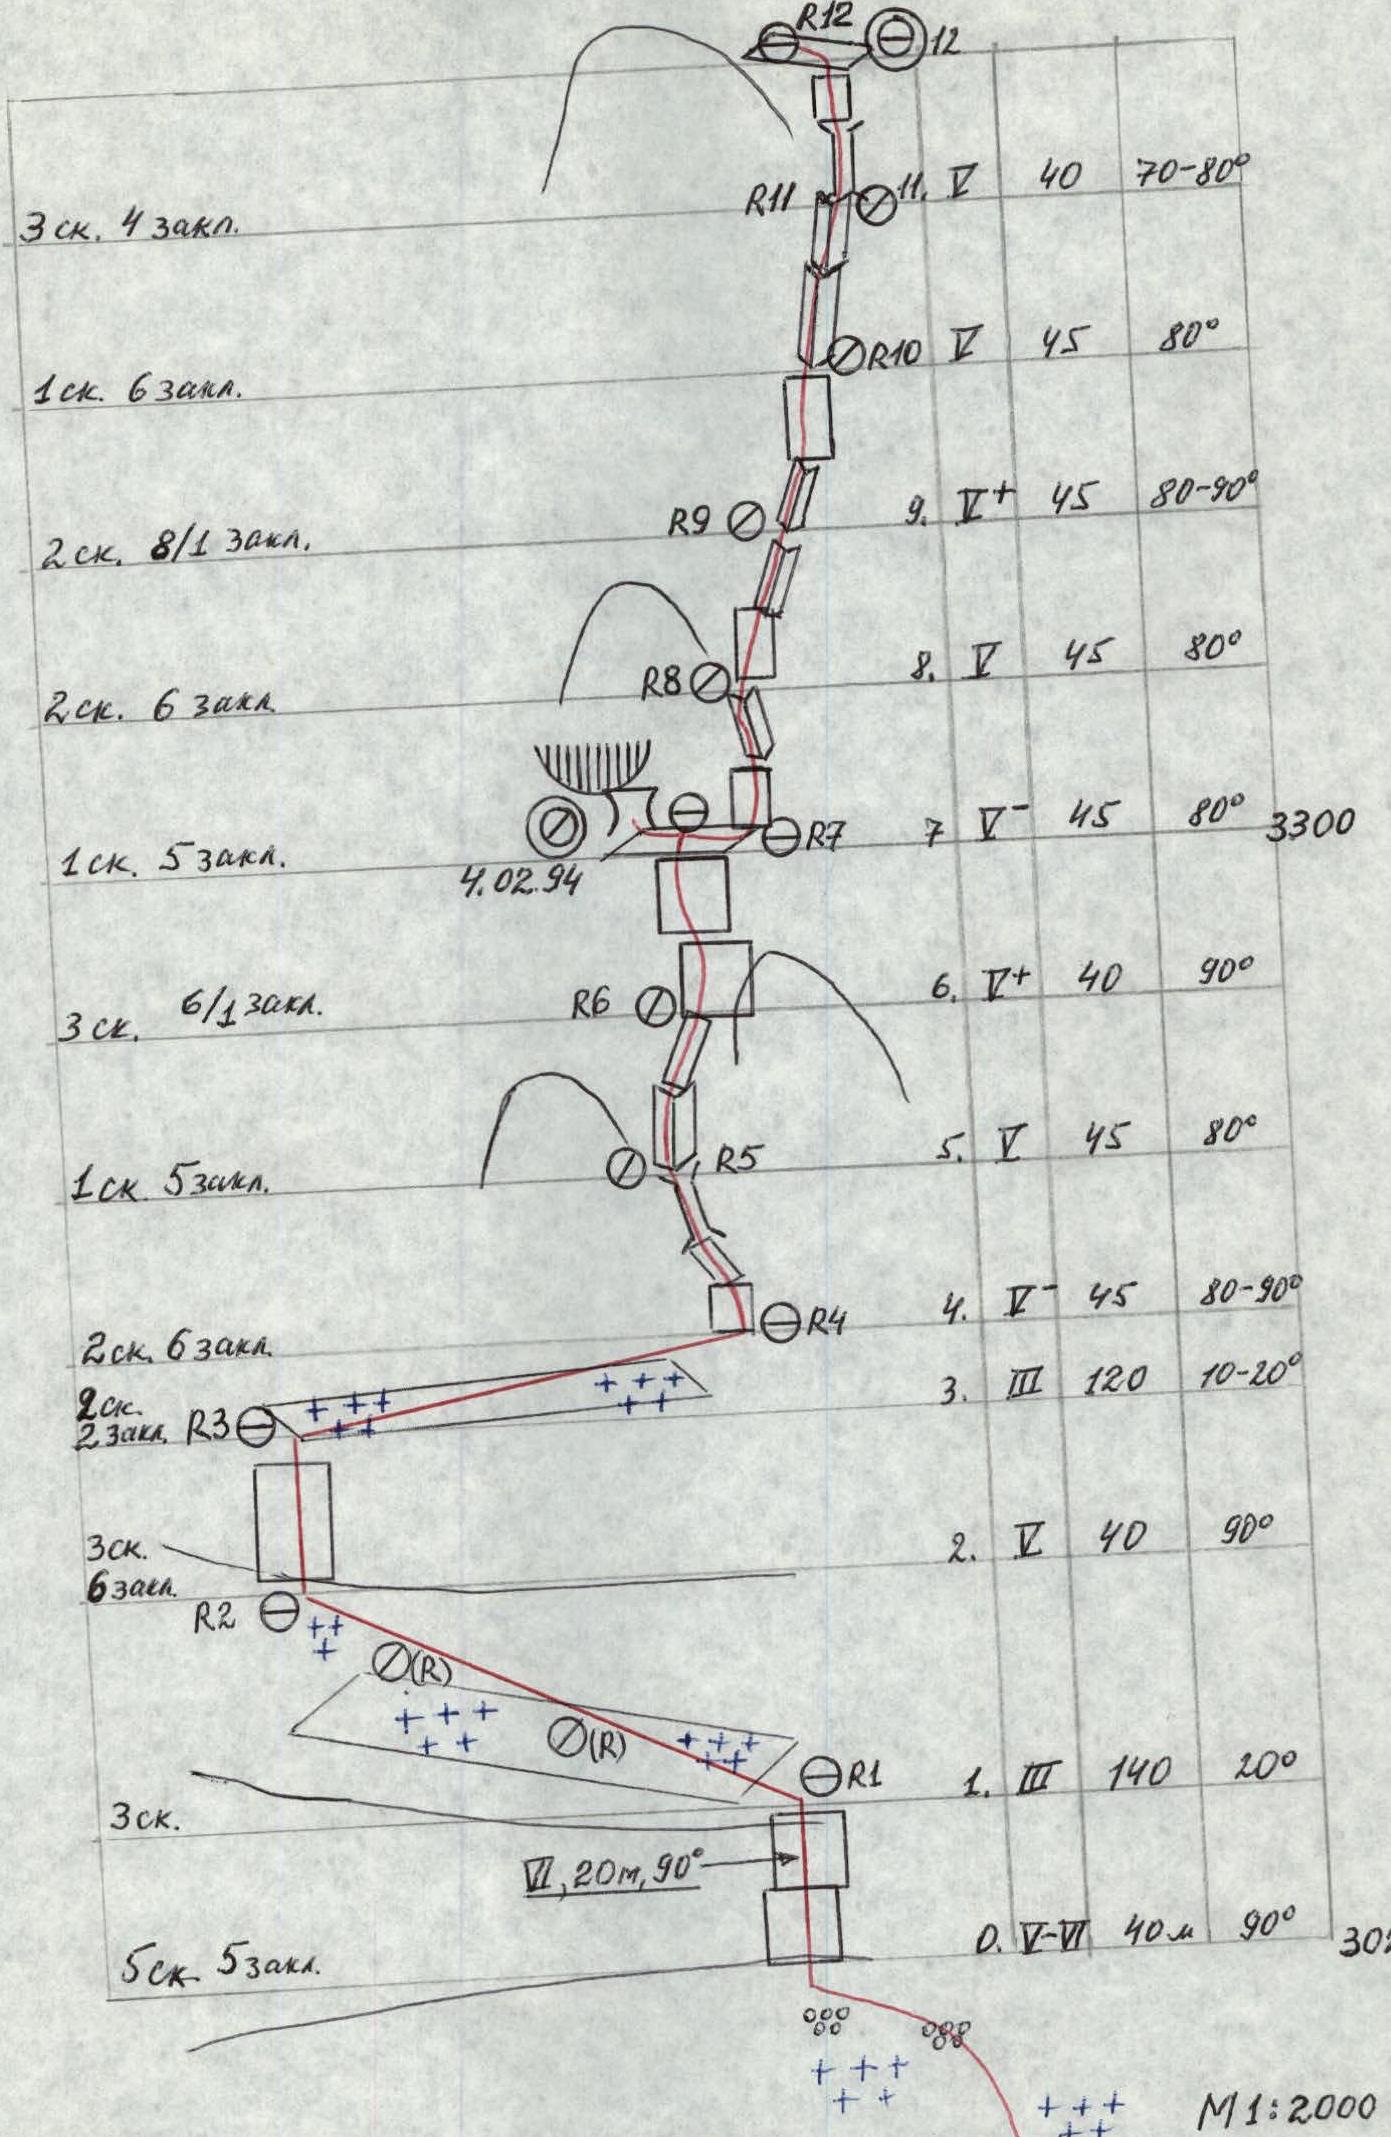 R12 12
R11 11. V 40 70-80°
3 ск. 4 закл.
R10 V 45 80°
1 ск. 6 закл.
R9 9. V+ 45 80-90°
2 ск. 8/1 закл.
R8 8. V 45 80°
2 ск. 6 закл.
R7 7 V- 45 80° 3300
1 ск. 5 закл.
4.02.94
R6 6. V+ 40 90°
3 ск. 6/1 закл.
R5 5. V 45 80°
1 ск. 5 закл.
R4 4. V- 45 80-90°
2 ск. 6 закл.
3. III 120 10-20°
2 ск.
2 закл. R3
2. V 40 90°
3 ск.
6 закл.
R2
(R)
(R)
R1 1. III 140 20°
3 ск.
VI, 20м, 90°
0. V-VI 40м 90°
5 ск. 5 закл.
М 1:2000